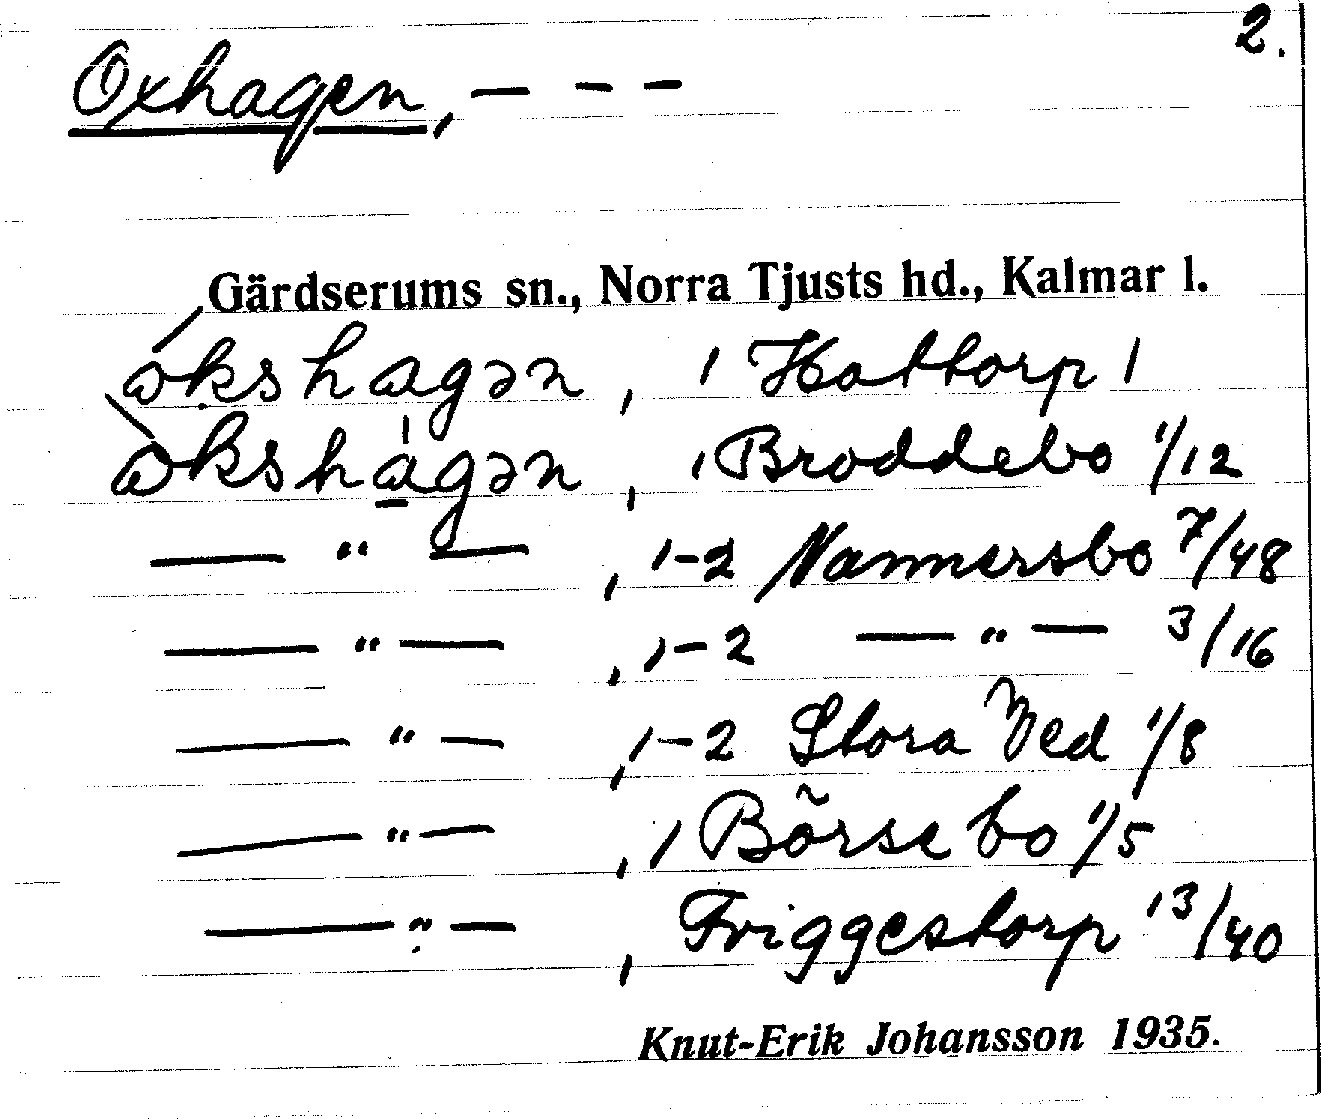 2.
Oxhagen, — – –
Gärdserums sn., Norra Tjusts hd., Kalmar l.
ókshagən, 1 Hattorp 1
òkshágən, 1 Broddebo 1/12
— " —, 1-2 Nammersbo 7/48
— " —, 1-2 — " — 3/16
— " —, 1-2 Stora Ved 1/8
— " —, 1 Börsebo 1/5
— " —, Friggestorp 13/40
Knut-Erik Johansson 1935.